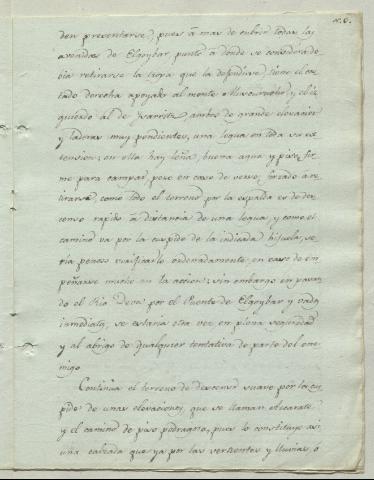 den presentarse, pues á mas de cubrir todas las
avenidas de Elgoybar, punto á donde se considera de
bia retirarse la tropa que la defendiese, tiene el cos
tado derecha apoyado al monte y el iz
quierdo al de ambos de grande elevacion
y laderas muy pendientes, una legua en toda su es
tension; en ella hay leña, buena agua y piso fir
me para campar, pero en caso de verse forzado á re
tirarse, como todo el terreno por la espalda es de des
censo rapido á distancia de una legua, y como el
camino va por la cuspide de la indicada hijuela, se
ria penoso verificarlo ordenadamente, en caso de em
peñarse mucho en la accion; sin embargo en pasan
do el Rio Deva por el Puente de Elgoybar y vados
inmediatos, se estaria otra vez en plena seguridad
y al abrigo de qualquier tentativa de parte del ene
migo.
Continúa el terreno de descenso suave por la cus
pide de unas elevaciones, que se llaman Azcarate
y el camino de piso pedragoso, pues lo constituye asi
una calzada que ya por las vertientes y lluvias, ó